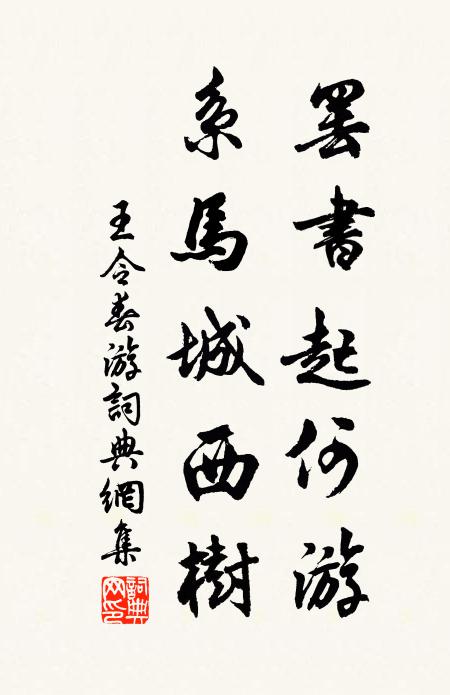 罢書起何游
系馬城西樹
王令春游詞典網集
詞典
网印